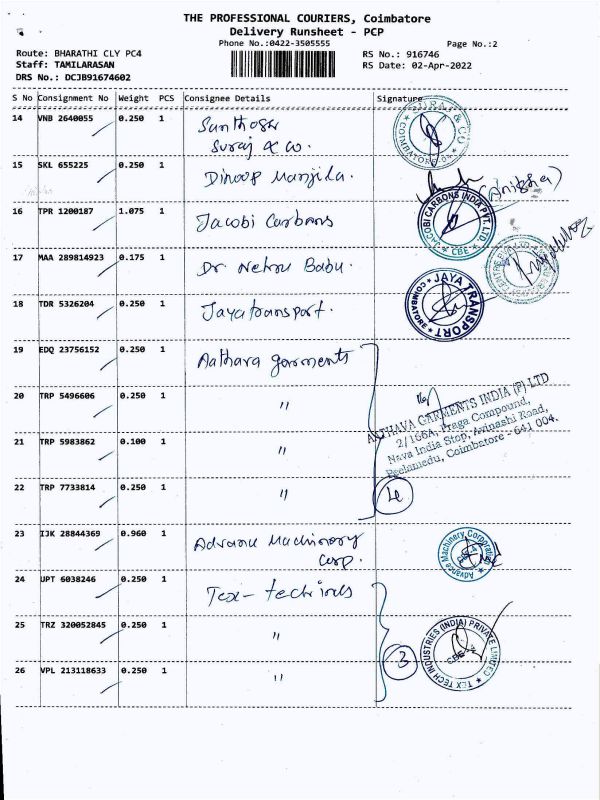 THE PROFESSIONAL COURIERS, Coimbatore
Delivery Runsheet - PCP
Phone No.:0422-3505555
Page No.:2
Route: BHARATHI CLY PC4
RS No.: 916746
Staff: TAMILARASAN
RS Date: 02-Apr-2022
DRS No.: DCJB91674602
S No Consignment No Weight PCS Consignee Details Signature
14 VNB 2640055 0.250 1 Santhosh
Suraj & co.
SURAJ & CO.
COIMBATORE-04
15 SKL 655225 0.250 1 Dinoop Manjila.
(Anisha)
16 TPR 1200187 1.075 1 Jacobi Carbons
JACOBI CARBONS INDIA PVT. LTD.
CBE
17 MAA 289814923 0.175 1 Dr Nehru Babu.
18 TDR 5326204 0.250 1 Jayatransport.
JAYA TRANSPORT
COIMBATORE
19 EDQ 23756152 0.250 1 Aathava garments
20 TRP 5496606 0.250 1 "
AATHAVA GARMENTS INDIA (P) LTD
2/166A, Praga Compound,
Nava India Stop, Avinashi Road,
Peelamedu, Coimbatore - 641 004.
21 TRP 5983862 0.100 1 "
22 TRP 7733814 0.250 1 "
4
23 IJK 28844369 0.960 1 Advance Machinery
Corp.
Advance Machinery Corporation
24 UPT 6038246 0.250 1 Tex-tech inds
25 TRZ 320052845 0.250 1 "
3
TEX TECH INDUSTRIES (INDIA) PRIVATE LIMITED
CBE-4
26 VPL 213118633 0.250 1 "